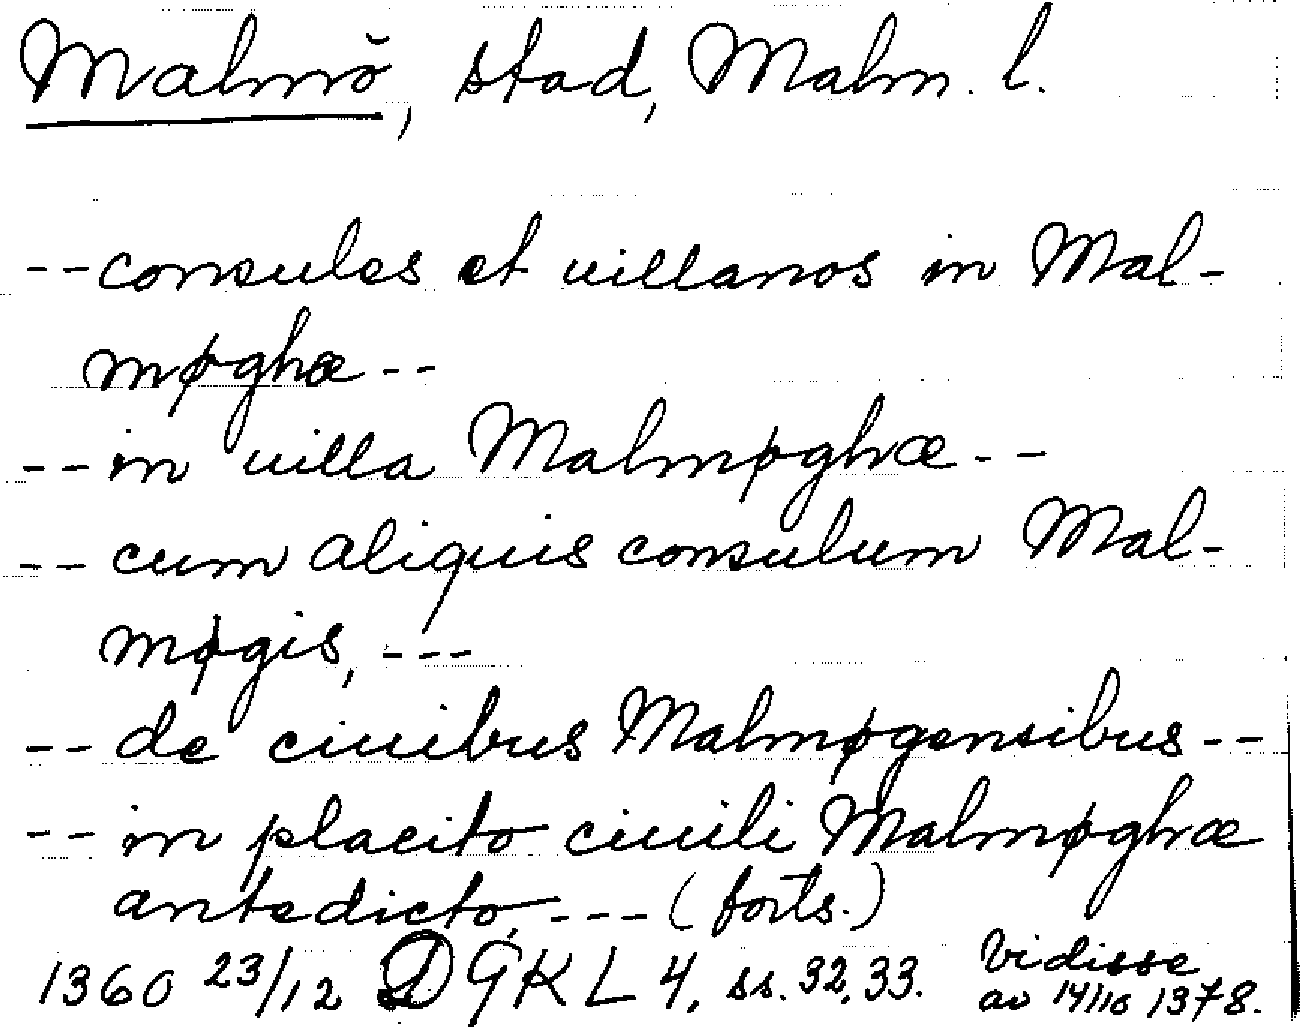 Malmö, stad, Malm. l.
-- consules et uillanos in Mal-
møghæ --
-- in uilla Malmøghæ --
-- cum aliquis consulum Mal-
møgis, ---
-- de ciuibus Malmøgensibus --
-- in placito ciuili Malmøghæ
antedicto, --- (forts.)
1360 23/12 DGKL 4, ss. 32, 33. Vidisse
av 14/10 1378.